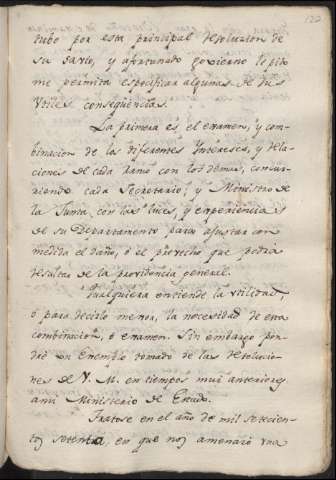 tubo por esta principal resolucion de
su savio, y afortunado govierno le pido
me permita especificar algunas de sus
utiles consequencias.
La primera es, el examen, y com-
binacion de los diferentes Intereses, y rela-
ciones de cada ramo con los demas, concur-
riendo cada Secretario, y Ministro de
la Junta, con las luces, y experiencias
de su Departamento, para ajustar con
medida el daño, ó el provecho que podria
resultar de la providencia general.
Qualquiera entiende la utilidad,
ó para decirlo menor, la necesidad de esta
combinacion, ó examen. Sin embargo pon-
dré un Exemplo tomado de las resolucio-
nes de V. M. en tiempos mui anteriores
a mi Ministerio de Estado.
Tratose en el año de mil setecien-
tos setenta, en que nos amenazó una